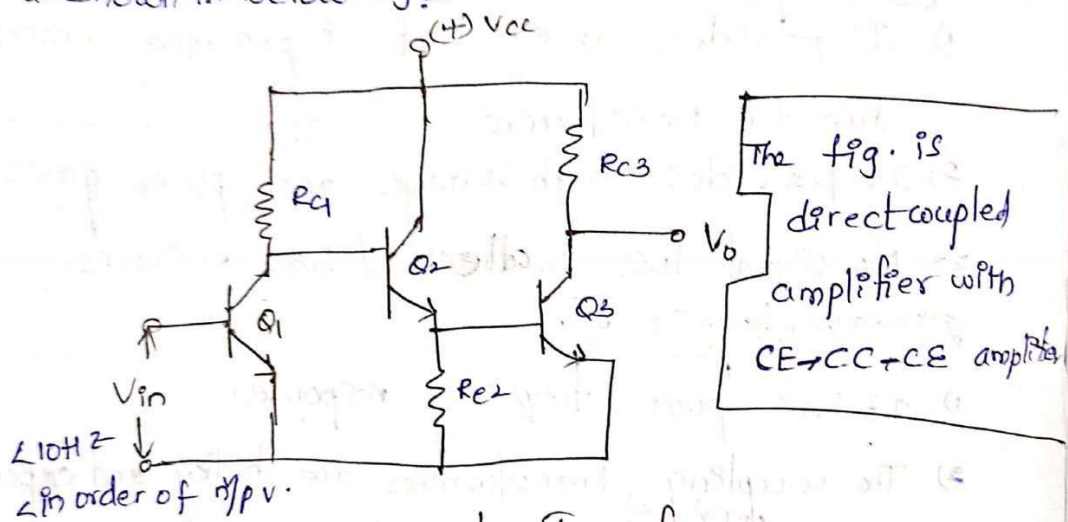 (+) Vcc
Rc1
Rc3
Q2
Vo
Q1
Q3
Re2
Vin
<10Hz
<in order of
The fig. is
direct coupled
amplifier with
CE→CC→CE amplifier